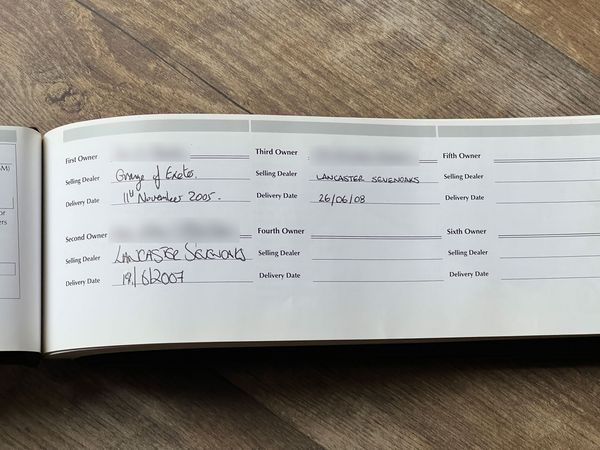 First Owner
Selling Dealer Grange of Exeter.
Delivery Date 11th November 2005.
Second Owner
Selling Dealer LANCASTER SEVENOAKS
Delivery Date 19/6/2007
Third Owner
Selling Dealer LANCASTER SEVENOAKS
Delivery Date 26/06/08
Fourth Owner
Selling Dealer
Delivery Date
Fifth Owner
Selling Dealer
Delivery Date
Sixth Owner
Selling Dealer
Delivery Date
M)
or
ers